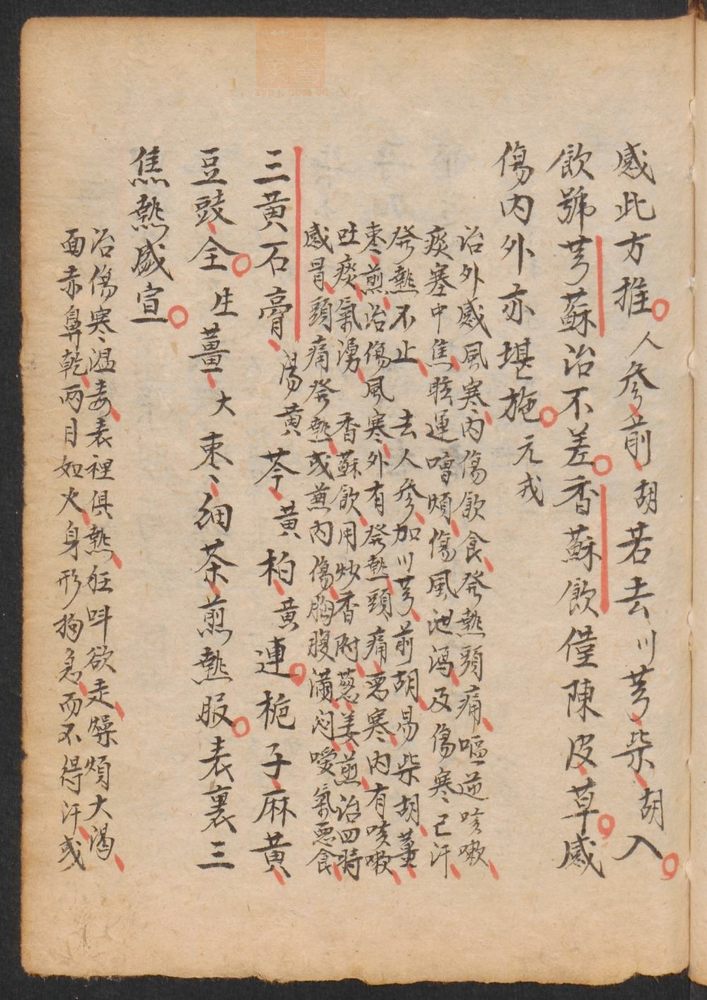 感此方推人參前胡若去川芎柴胡入
飲號芎蘇治不差香蘇飲僅陳皮草感
傷内外亦堪施元戎
治外感風寒内傷飲食發熱頭痛嘔逆咳嗽
痰塞中焦眩運嘈煩傷風泄瀉及傷寒已汗
發熱不止去人參加川芎前胡易柴胡薑
棗煎治傷風寒外有發熱頭痛惡寒内有咳嗽
吐痰氣湧香蘇飲用炒香附葱姜煎治四時
感冒頭痛發熱或蒸内傷胸腹滿悶噯氣惡食
三黄石膏湯黄芩黄柏黄連梔子麻黄
豆豉全生薑大棗細茶煎熱服表裏三
焦熱盛宣
治傷寒温毒表裡俱熱狂呌欲走燥煩大渴
面赤鼻乾两目如火身形拘急而不得汗或